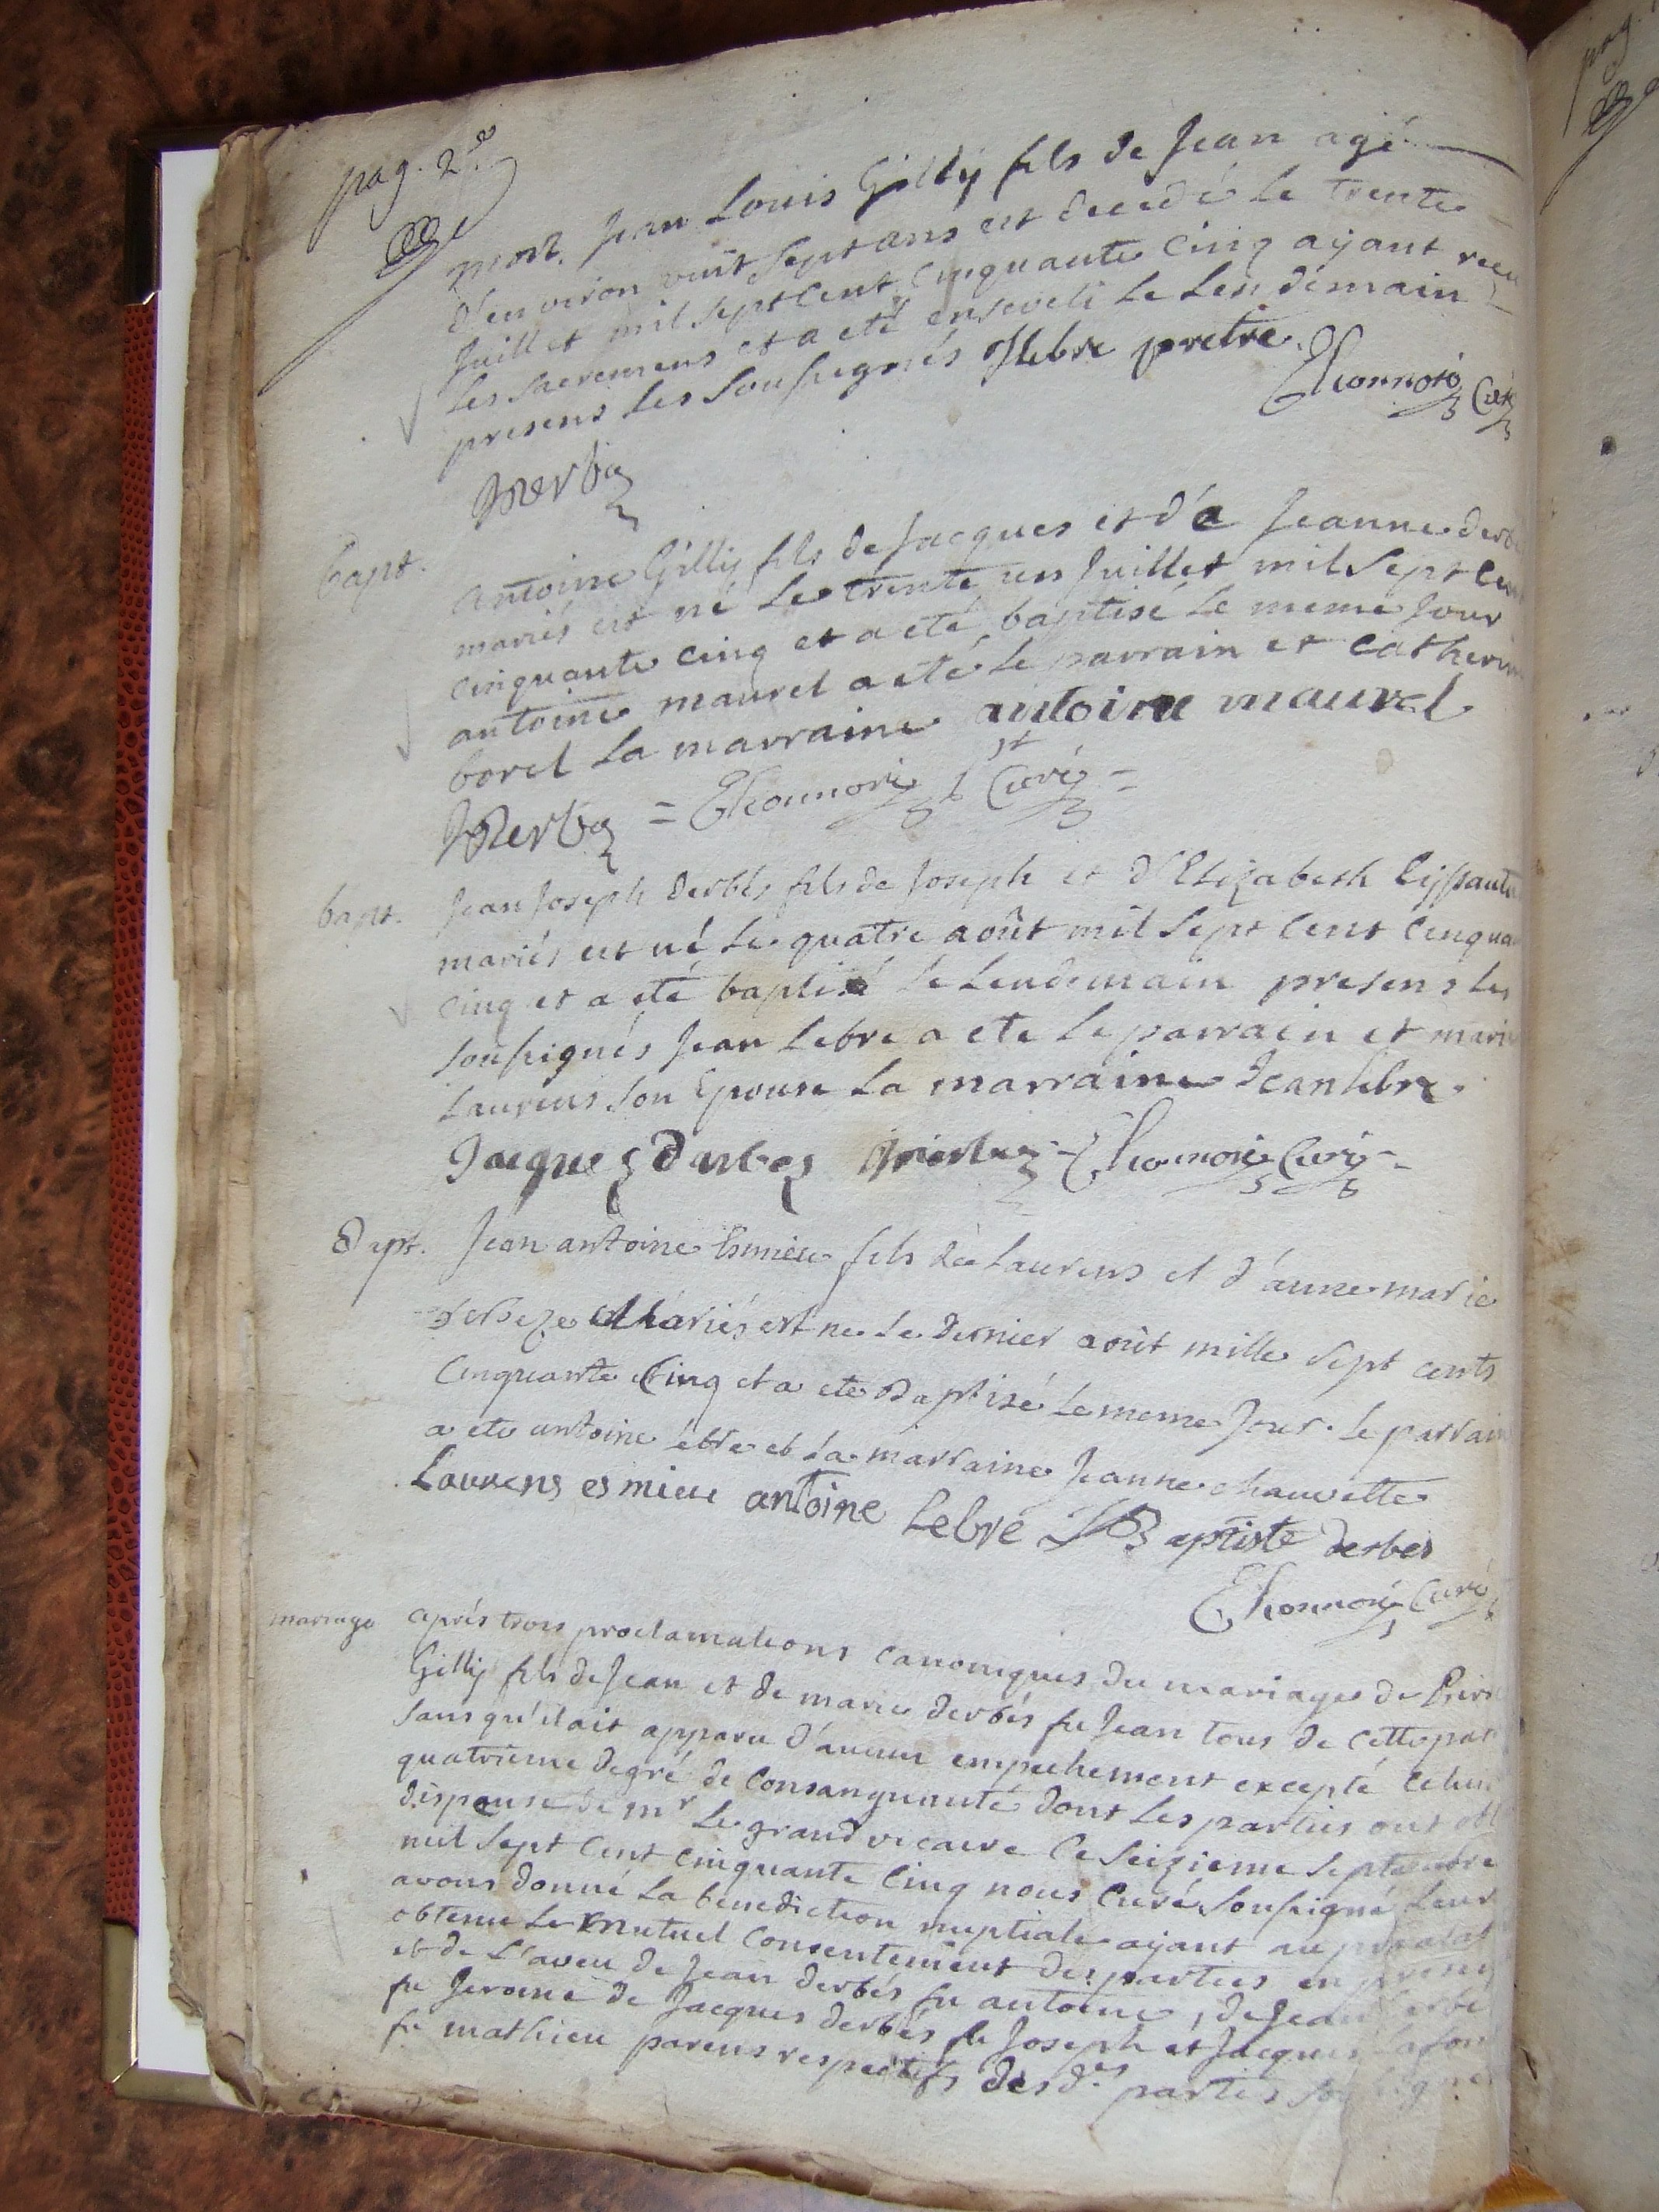 pag. 2e
mort. Jean Louis Gilly fils de Jean agé
d'environ vint sept ans est decedé le trente
Juillet mil sept cent cinquante cinq ayant recu
les sacremens et a eté enseveli le lendemain
presens les soussignés Jlebre pretre.
curé
bapt. antoine Gilly fils de Jacques et de Jeanne
mariés est né le trente un Juillet mil sept cent
cinquante cinq et a eté baptisé le meme Jour
antoine maurel a eté le parrain et catherine
borel la marraine antoine maurel
Curé
bapt. Jean Joseph derbés fils de Joseph et d'Elizabeth
mariés est né le quatre août mil sept cent
cinq et a eté baptisé le lendemain presens les
soussignés Jean lebre a ete le parrain et marie
Laurens son Epouse la marraine Jean lebre.
Jacques darbes Curé
Bapt. Jean antoine Esmieu fils de Laurens et d'anne marie
mariés est ne le dernier août mille sept cents
Cinquante Cinq et a ete Baptisé le meme Jour. le parrain
a ete antoine lebre et la marraine Jeanne chauvette
Laurens esmieu antoine Lebre JBaptiste derbes
Curé
mariage après trois proclamations canoniques du mariage de
Gilly fils de Jean et de marie derbés fu Jean tous de cette
sans qu'il ait apparu d'aucun empechement excepté celui
quatrieme degré de consanguinité dont les parties ont
dispense de mr le grand vicaire ce seizieme septembre
mil sept cent cinquante cinq nous curé soussigné leur
avons donné la benediction nuptiale ayant au
obtenu le mutuel consentement des parties en
et de l'aveu de Jean derbés fu antoine, de Jean
fu Jerome de Jacques derbés fu Joseph et Jacques
fu mathieu parens respectifs des des parties